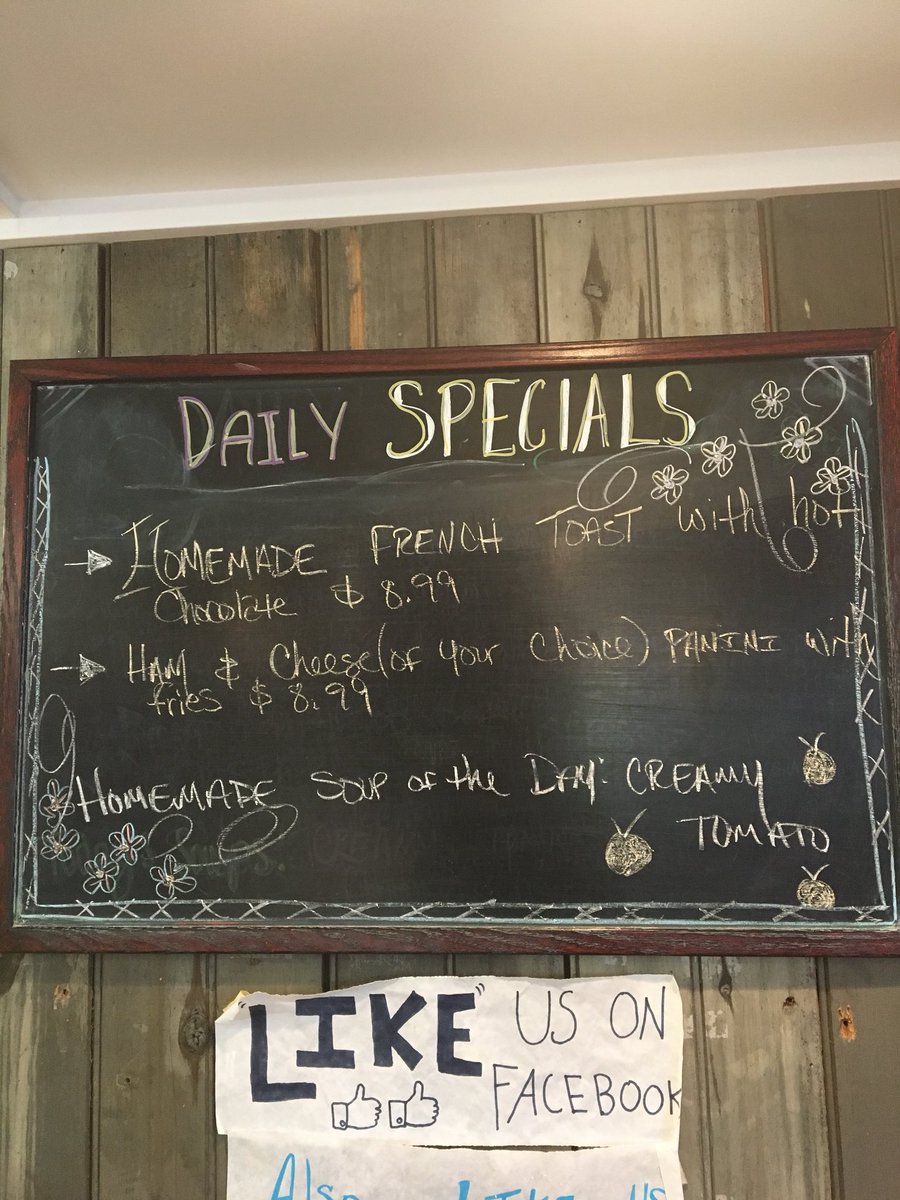 DAILY SPECIALS
HOMEMADE FRENCH TOAST with hot
Chocolate $ 8.99
HAM & Cheese (of your choice) PANINI with
fries $ 8.99
HOMEMADE SOUP of the DAY: CREAMY
TOMATO
"LIKE" US ON
FACEBOOK
Also LIKE US